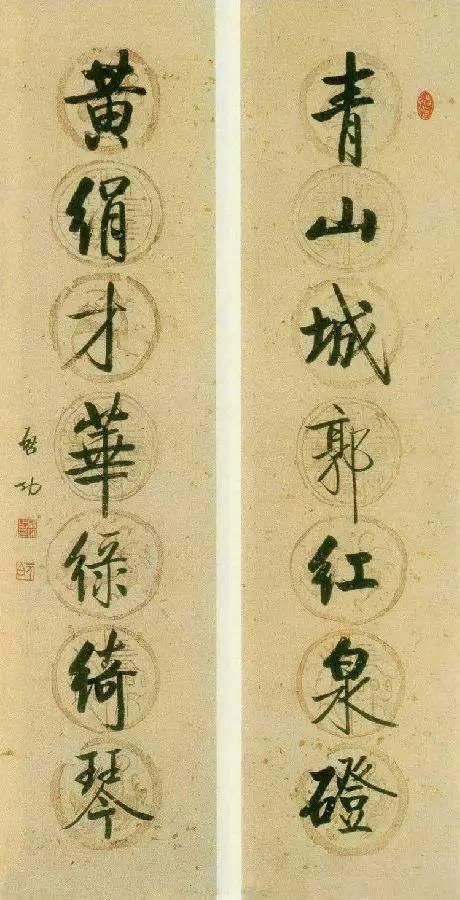 青山城郭红泉磴
黄绢才華緑綺琴
啟功